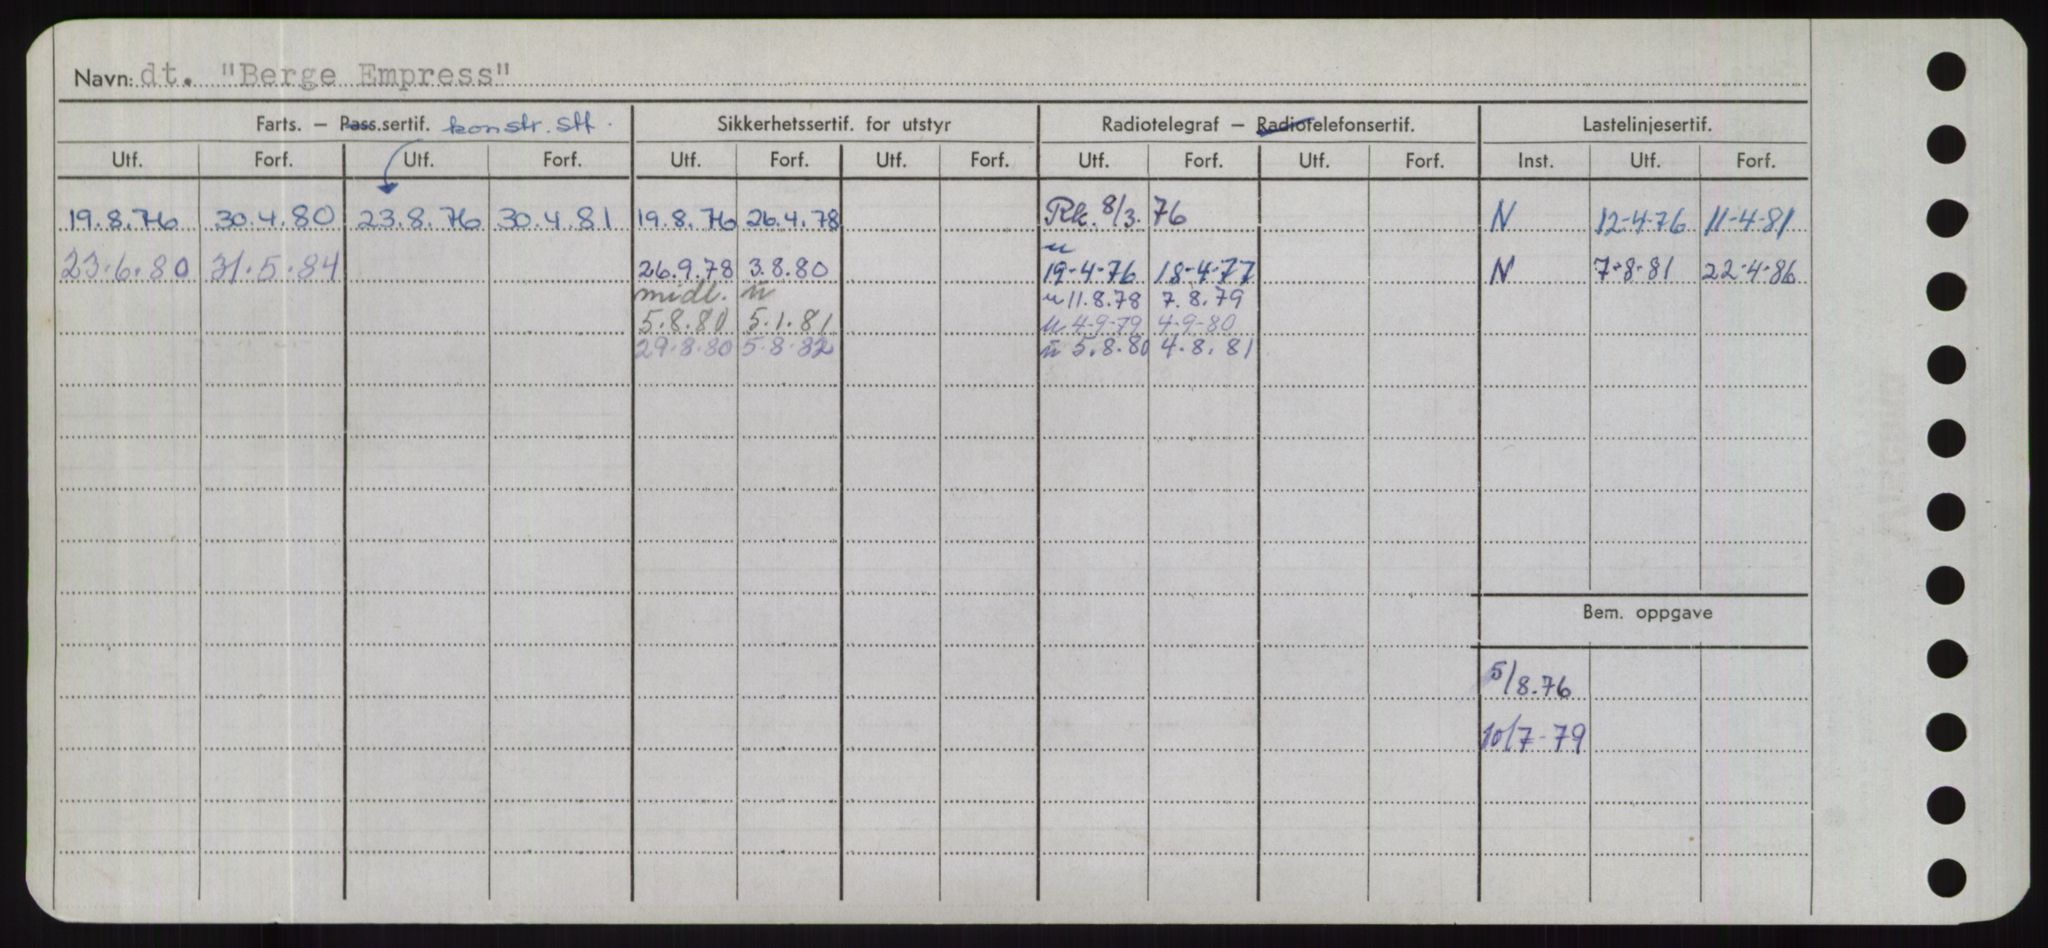 Navn: dt. "Berge Empress"
Farts. — Pass.sertif. konstr. stf. Sikkerhetssertif. for utstyr Radiotelegraf — Radiotelefonsertif. Lastelinjesertif.
Utf. Forf. Utf. Forf. Utf. Forf. Utf. Forf. Utf. Forf. Utf. Forf. Inst. Utf. Forf.
19.8.76 30.4.80 23.8.76 30.4.81 19.8.76 26.4.78 Rk. 8/3. 76 N 12-4-76 11-4-81
u
23.6.80 31.5.84 26.9.78 3.8.80 19-4-76 18-4-77 N 7-8-81 22-4-86
midl. u u 11.8.78 7.8.79
5.8.80 5.1.81 u 4-9-79 4-9-80
29.8.80 5.8.82 u 5.8.80 4.8.81
Bem. oppgave
5/8.76
10/7-79